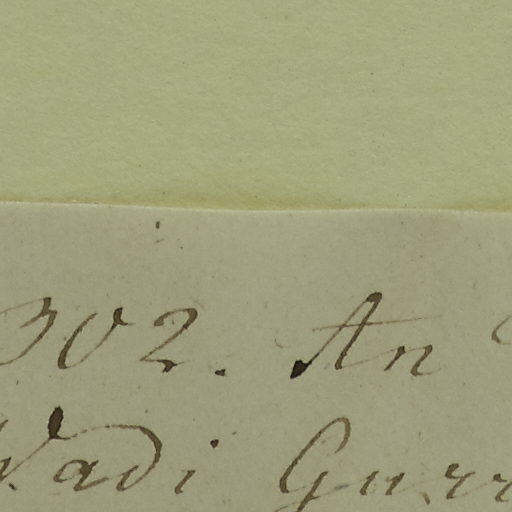 302. An
Wadi Gurr